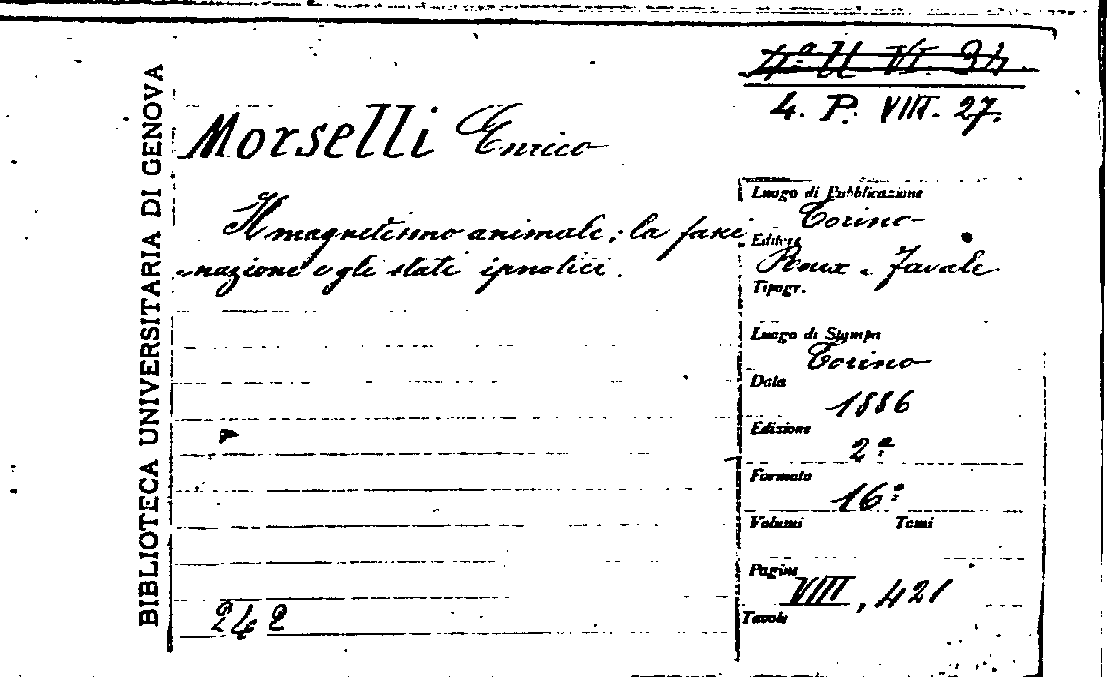 4.ª U VI. 34.
4. P. VIII. 27.
BIBLIOTECA UNIVERSITARIA DI GENOVA
Morselli Enrico
Il magnetismo animale; la fasci
nazione e gli stati ipnotici.
242
Luogo di Pubblicazione
Torino
Editore
Roux e Favale
Tipogr.
Luogo di Stampa
Torino
Data
1886
Edizione
2ª
Formato
16º
Volumi Tomi
Pagine
VIII, 421
Tavole